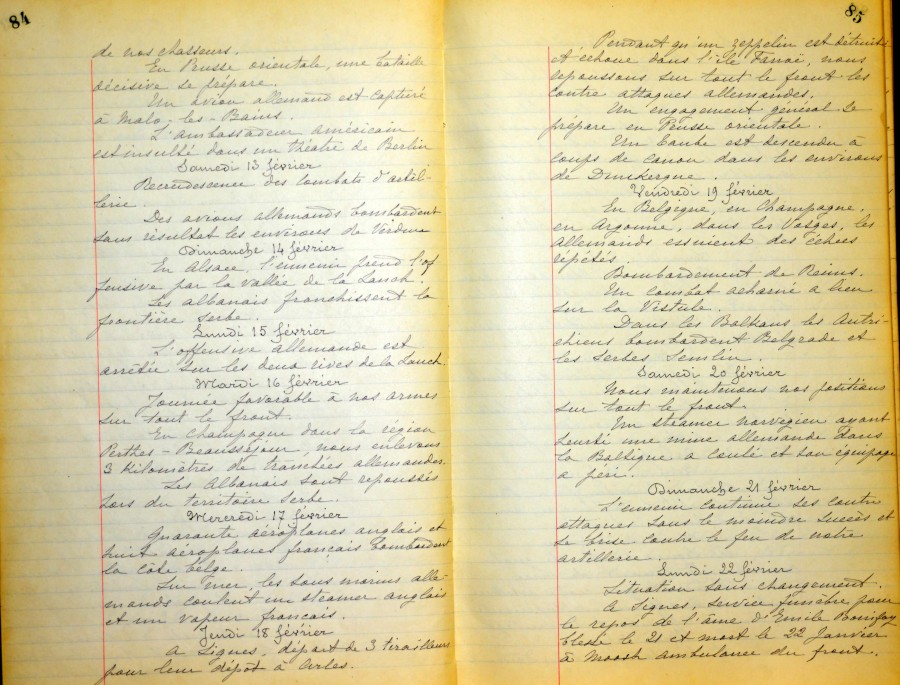 84
de nos chasseurs.
En Prusse orientale, une bataille
décisive se prépare.
Un avion allemand est capturé
à Malo-les-Bains.
L'ambassadeur américain
est insulté dans un théâtre de Berlin
Samedi 13 février
Recrudescence des combats d'artil-
lerie.
Des avions allemands bombardent
sans résultat les environs de Verdun
Dimanche 14 février
En Alsace, l'ennemi prend l'of
fensive par la vallée de la Lauch.
Les albanais franchissent la
frontière serbe.
Lundi 15 février
L'offensive allemande est
arrêtée sur les deux rives de la Lauch.
Mardi 16 février
Journée favorable à nos armes
sur tout le front.
En Champagne dans la région
Perthes-Beauséjour, nous enlevons
3 kilomètres de tranchées allemandes.
Les Albanais sont repoussés
hors du territoire serbe.
Mercredi 17 février
Quarante aéroplanes anglais et
huit aéroplanes français bombardent
la côte belge.
Sur mer, les sous marins alle-
mands coulent un steamer anglais
et un vapeur français.
Jeudi 18 février
A Signes, départ de 3 tirailleurs
pour leur dépôt à Arles.
85
Pendant qu'un zeppelin est détruit
et échoue dans l'île Fanoë, nous
repoussons sur tout le front les
contre attaques allemandes.
Un engagement général se
prépare en Prusse orientale.
Un Taube est descendu à
coups de canon dans les environs
de Dunkerque.
Vendredi 19 février
En Belgique, en Champagne,
en Argonne, dans les Vosges, les
allemands essuient des échecs
répétés.
Bombardement de Reims.
Un combat acharné a lieu
sur la Vistule.
Dans les Balkans les Autri-
chiens bombardent Belgrade et
les Serbes Semlin.
Samedi 20 février
Nous maintenons nos positions
sur tout le front.
Un steamer norvégien ayant
heurté une mine allemande dans
la Baltique a coulé et son équipage
a péri.
Dimanche 21 février
L'ennemi continue ses contre
attaques sans le moindre succès et
se brise contre le feu de notre
artillerie.
Lundi 22 février
Situation sans changement.
A Signes, service funèbre pour
le repos de l'âme d'Emile
blessé le 21 et mort le 22 Janvier
à Moosh ambulance du front.